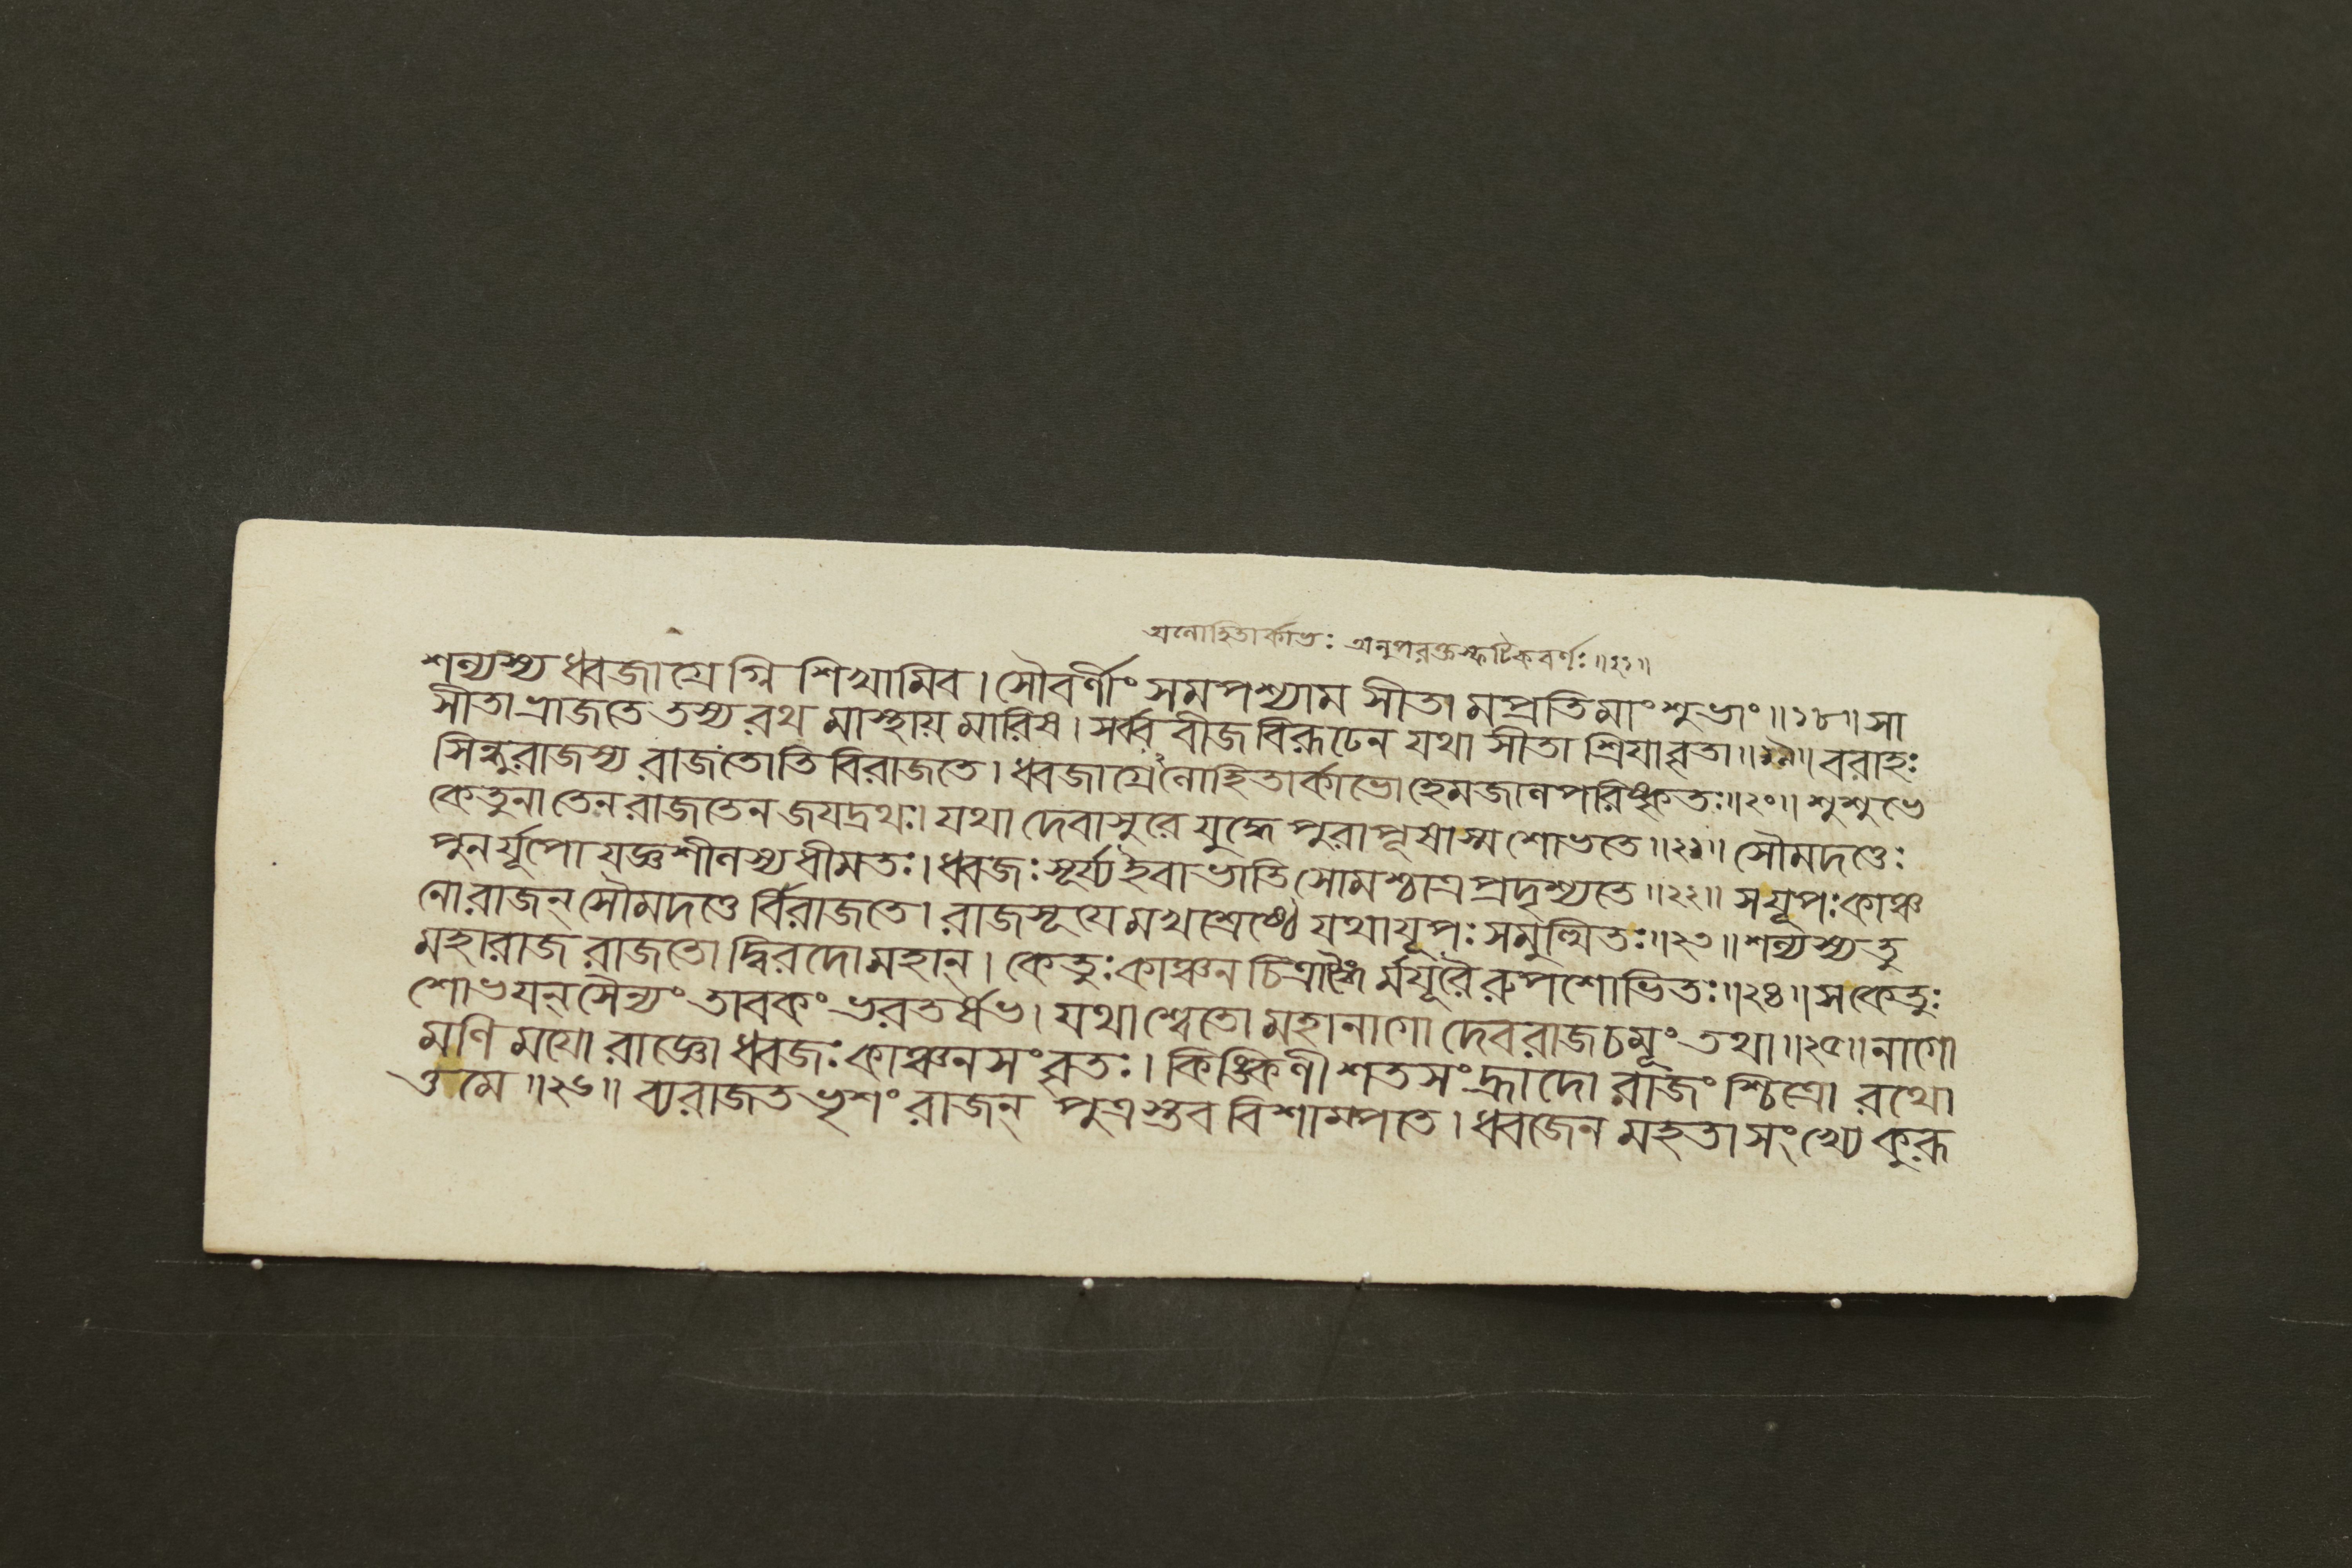 অলোহিতার্কাভঃ অনুপরক্তস্ফটিকবর্ণঃ॥২১॥
শল্যস্য ধ্বজাগ্রেগ্নি শিখামিব। সৌবর্ণীং সমপশ্যাম সীতা মপ্রতিমাং শুভাং॥১৮॥ সা
সীতা ভ্রাজতে তস্য রথ মাস্থায় মারিষ। সর্ব্ব বীজ বিরূঢেব যথা সীতা শ্রিয়াবৃতা॥১৯॥ বরাহঃ
সিন্ধুরাজস্য রাজতোতি বিরাজতে। ধ্বজাগ্রেলোহিতার্কাভোহেমজালপরিষ্কৃতঃ॥২০॥ শুশুভে
কেতুনাতেন রাজতেন জয়দ্রথঃ। যথা দেবাসুরে যুদ্ধে পুরাপূষাস্ম শোভতে॥২১॥ সৌমদত্তেঃ
পুনর্যূপো যজ্ঞশীলস্য ধীমতঃ। ধ্বজঃ সূর্য্য ইবাভাতি সোমশ্চাত্র প্রদৃশ্যতে॥২২॥ সযূপঃ কাঞ্চ
নোরাজন্ সৌমদত্তে র্বিরাজতে। রাজসূয়ে মখশ্রেষ্ঠে যথাযূপঃ সমুচ্ছ্রিতঃ॥২৩॥ শল্যস্য তু
মহারাজ রাজতো দ্বিরদোমহান্। কেতুঃ কাঞ্চন চিত্রাঙ্গৈ র্ময়ূরৈ রুপশোভিতঃ॥২৪॥ সকেতুঃ
শোভয়ন্ সৈন্যং তাবকং ভরতর্ষভ। যথাশ্বেতো মহানাগো দেবরাজচমূং তথা॥২৫॥ নাগো
মণি ময়ো রাজ্ঞো ধ্বজঃ কাঞ্চনসংবৃতঃ। কিঙ্কিণী শতসংহ্রাদো রাজং শ্চিত্রো রথো
ত্তমে॥২৬॥ ব্যরাজত ভৃশং রাজন্ পুত্রস্তব বিশাম্পতে। ধ্বজেন মহতাসংখ্যে কুরূ